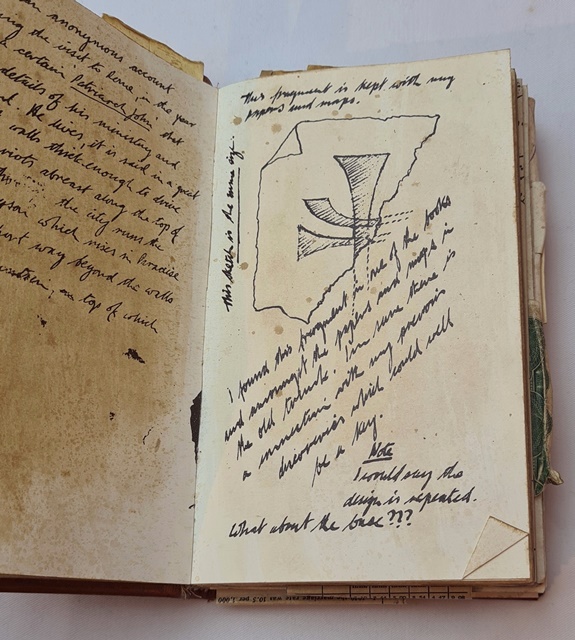 an anonymous account
the visit to Rome in the year
a certain Patriarch John that
details of his ministry and
He lives, it is said in a great
walls thick enough to drive
abreast along the top of
the city runs the
which rises in Paradise
way beyond the walls
on top of which
This fragment is kept with my
papers and maps.
This sketch is the same size.
I found this fragment in one of the books
and amongst the papers and maps in
the old trunk. I'm sure there is
a connection with my previous
discoveries which could well
be a key.
Note
I would say the
design is repeated.
What about the base???
marriage rate was 10.5 per 1,000